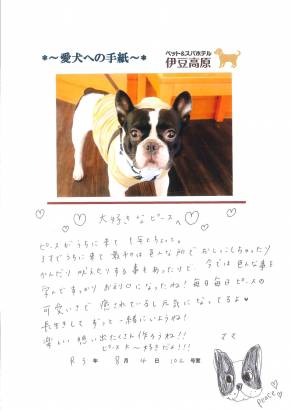 *～愛犬への手紙～*
ペット&スパホテル
伊豆高原
大好きなピースへ
ピースがうちに来て1年とちょっと。
まずうちに来て最初は色んな所でおしっこしちゃったり
かんだり吠えたりする事もあったりで、今では色んな事を
学んですっかりお利口になったね!毎日毎日ピースの
可愛いさで癒されているし元気になってるよ♥
長生きしてずっと一緒にいようね!
楽しい想い出たくさん作ろうね!!
ピース大〜好きだよ!!!
ママ
R5年 8月 4日 102号室
peace♥